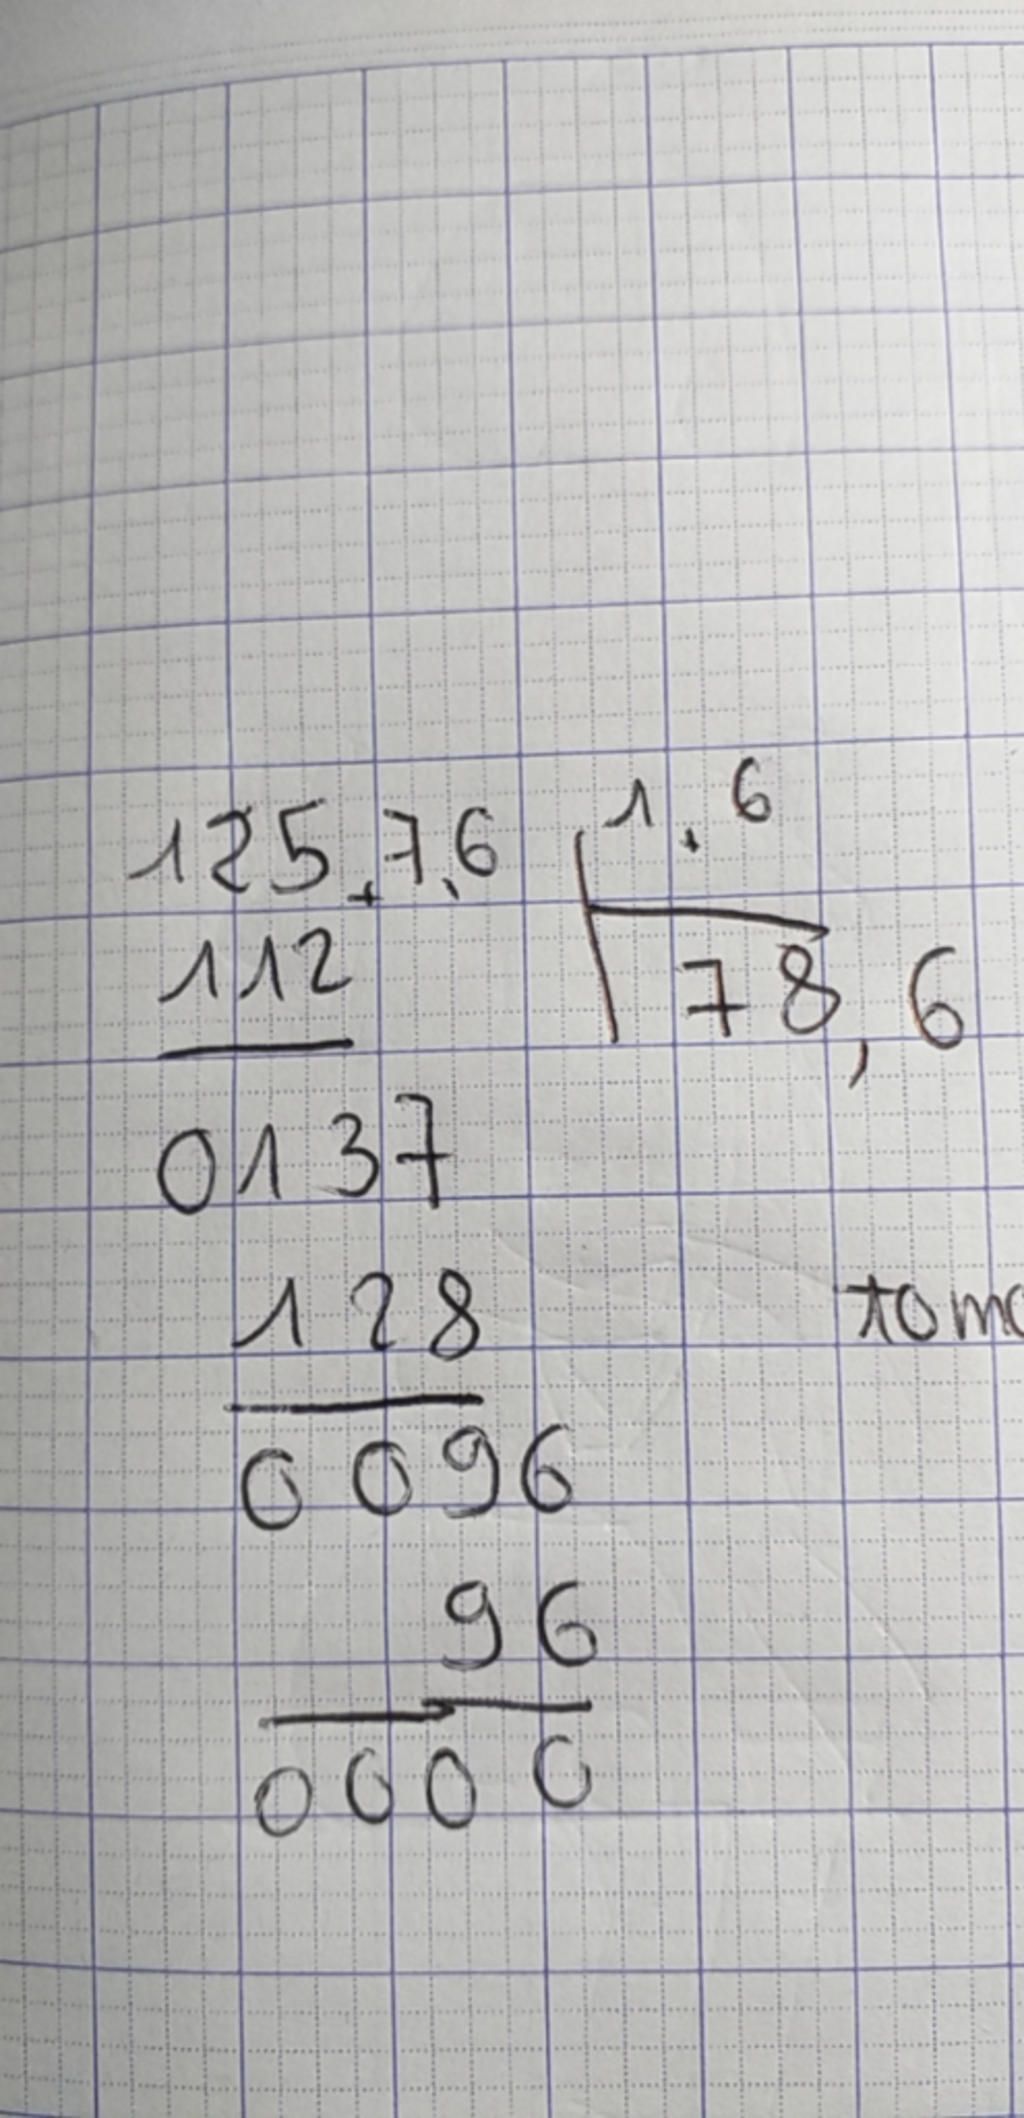 125.7,6 1.6
112 78,6
0137
128
0096
96
0000